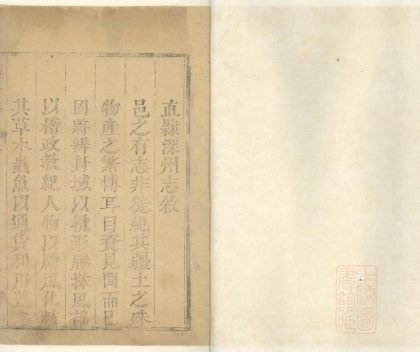 直隸深州志敘
邑之有志非徒紀其疆土之殊
物產之繁博耳目資見聞而已
固將辨封域以攬形勝採風謠
以稽政教紀人物以勵風化釋
其草木蟲魚以通貨利用
上海圖
書館